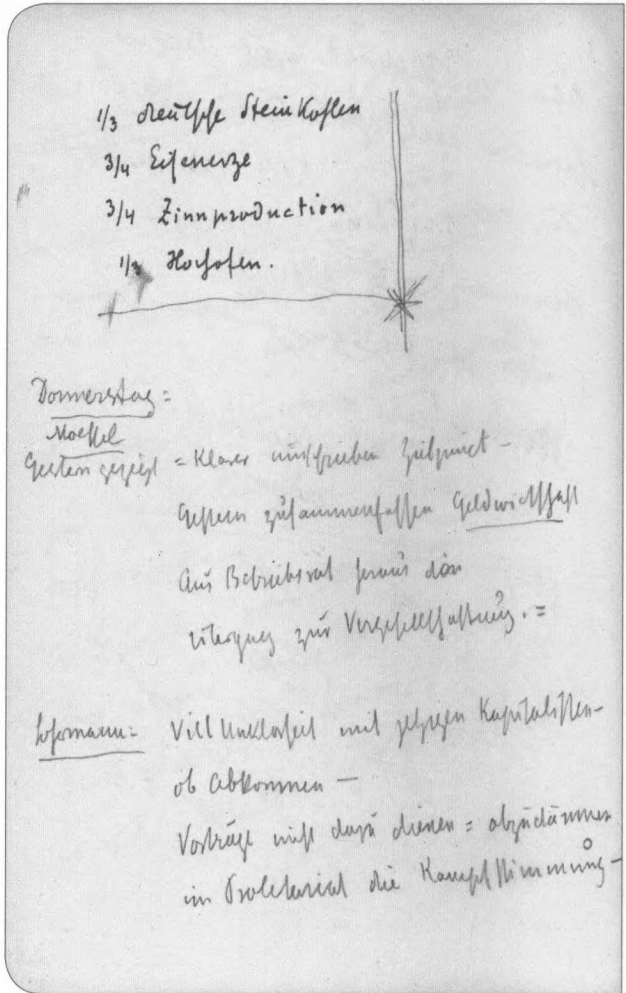 1/3 deutsche Steinkohlen
3/4 Eisenerze
3/4 Zinnproduction
1/3 Hochofen.
Donnerstag =
Gestern gezeigt = Klarer
Gestern zusammenfassen Geldwirtschaft
Aus Betriebsrat heraus den
zur Vergesellschaftung. =
Lohrmann = Viel Unklarheit mit Kapitalisten-
ob Abkommen —
Vorträge nicht dazu dienen = abzudämmen
im Proletariat die Kampfstimmung —